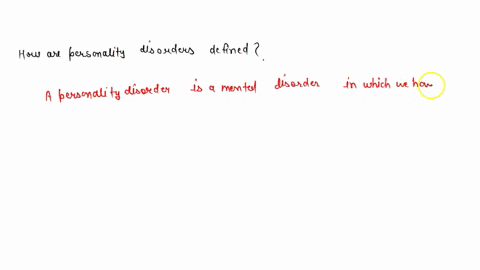 How are personality disorders defined?.
A personality disorder is a mental disorder in which we hav